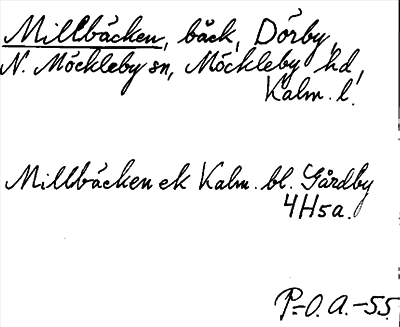 Millbäcken, bäck, Dörby,
N. Möckleby sn, Möckleby hd,
Kalm. l.
Millbäcken ek Kalm. bl. Gårdby
4H5a.
P-O. A. -55